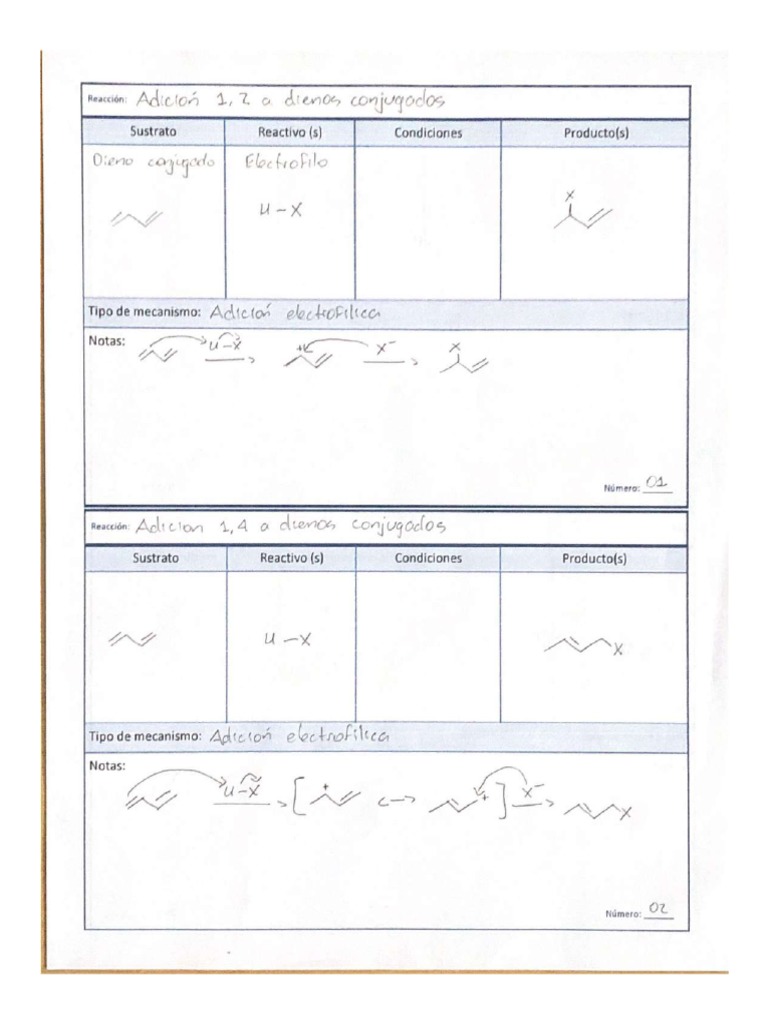 Reacción: Adición 1,2 a dienos conjugados
Sustrato Reactivo (s) Condiciones Producto(s)
Dieno conjugado Electrofilo
H-X
X
Tipo de mecanismo: Adición electrofílica
Notas:
H-X + X⁻ X
Número: 01
Reacción: Adicion 1,4 a dienos conjugados
Sustrato Reactivo (s) Condiciones Producto(s)
H-X
X
Tipo de mecanismo: Adición electrofílica
Notas:
H-X [ + ↔ + ] X⁻ X
Número: 02